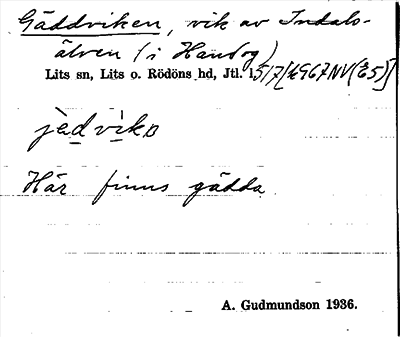 Gäddviken, vik av Indals-
älven (i Handog)
Lits sn, Lits o. Rödöns hd, Jtl. 1
jèdvìkɒ
Här finns gädda.
A. Gudmundson 1936.